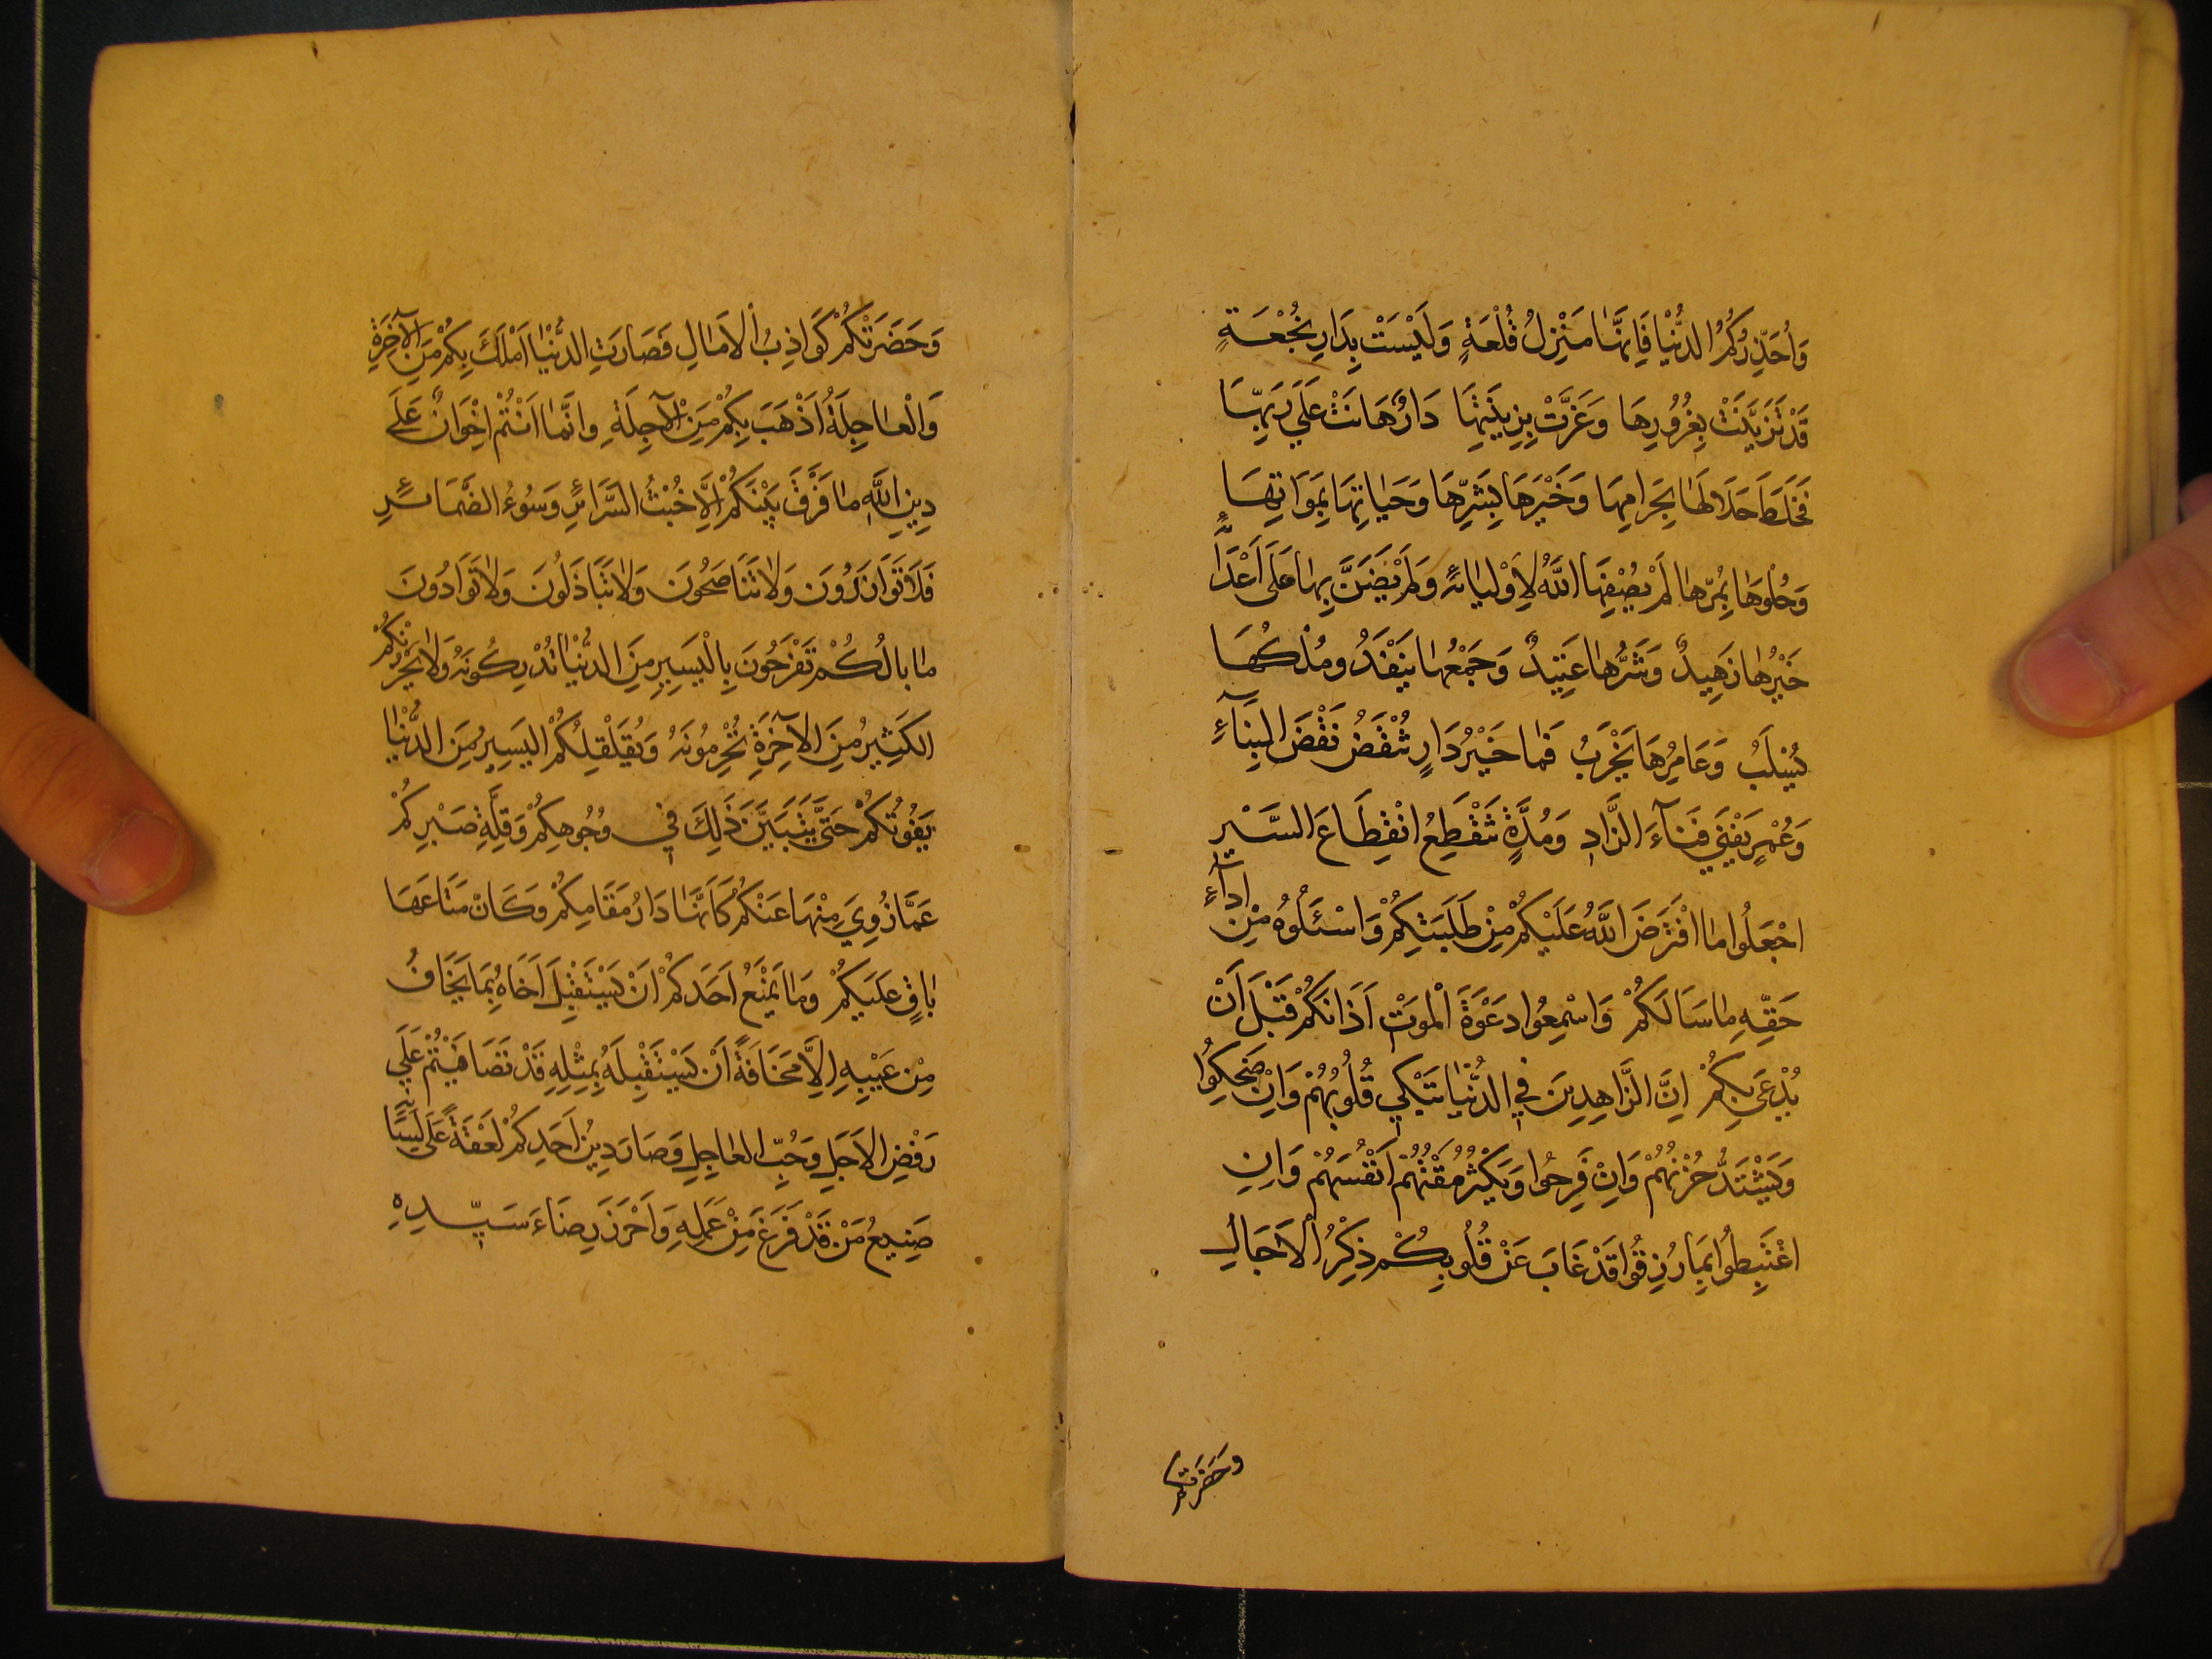 وَاُحَذِّرُكُمُ الدُّنْيٰا فَاِنَّهٰا مَنْزِلُ قُلْعَةٍ وَلَيْسَتْ بِدَارِ نُجْعَةٍ
قَدْ تَزَيَّنَتْ بِغُرُورِهَا وَغَرَّتْ بِزِينَتِهَا دَارٌ هَانَتْ عَلَي رَبِّهَا
فَخَلَطَ حَلَالَهٰا بِحَرامِهَا وَخَيْرَهَا بِشَرِّهَا وَحَيٰاتِهَا بِمَوَاتِهَا
وَحُلْوَهَا بِمُرِّهٰا لَمْ يُصْفِهَا اللّٰهُ لِاَوْلِيٰائِهِ وَلَمْ يَضِنَّ بِهٰا عَلَى اَعْدَائِهِ
خَيْرُهٰا زَهِيدٌ وَشَرُّهٰا عَتِيدٌ وَجَمْعُهٰا يَنْفَدُ وَمُلْكُهَا
يُسْلَبُ وَعَامِرُهَا يَخْرَبُ فَمٰا خَيْرُ دَارٍ تُنْقَضُ نَقْضَ الْبِنٰآءِ
وَعُمْرٍ يَفْنَي فَنَآءَ الزَّادِ وَمُدَّةٍ تَنْقَطِعُ انْقِطَاعَ السَّيْرِ
اجْعَلُوا مٰا افْتَرَضَ اللّٰهُ عَلَيْكُمْ مِنْ طَلِبَتِكُمْ وَاسْئَلُوهُ مِنْ اَدآءِ
حَقِّهِ مٰا سَاَلَكُمْ وَاسْمِعُوا دَعْوَةَ الْمَوْتِ اٰذَانَكُمْ قَبْلَ اَنْ
يُدْعَى بِكُمْ اِنَّ الزَّاهِدِينَ فِي الدُّنْيٰا تَبْكِي قُلُوبُهُمْ وَاِنْ ضَحِكُوا
وَيَشْتَدُّ حُزْنُهُمْ وَاِنْ فَرِحُوا وَيَكْثُرُ مَقْتُهُمْ اَنْفُسَهُمْ وَاِنِ
اغْتَبَطُوا بِمَا رُزِقُوا قَدْ غَابَ عَنْ قُلُوبِكُمْ ذِكْرُ الْاٰجَالِ
وحضرتكم
وَحَضَرَتْكُمْ كَوَاذِبُ الْاٰمٰالِ فَصَارَتِ الدُّنْيٰا اَمْلَكَ بِكُمْ مِنَ الْآخِرَةِ
وَالْعٰاجِلَةُ اَذْهَبَ بِكُمْ مِنَ الْآجِلَةِ وَاِنَّمٰا اَنْتُمْ اِخْوَانٌ عَلَى
دِينِ اللّٰهِ مٰا فَرَّقَ بَيْنَكُمْ اِلَّا خُبْثُ السَّرَائِرِ وَسُوءُ الضَّمَائِرِ
فَلَا تَوَازَرُونَ وَلٰا تَنَاصَحُونَ وَلٰا تَبَاذَلُونَ وَلٰا تَوَادُّونَ
مٰا بالُكُمْ تَفْرَحُونَ بِالْيَسِيرِ مِنَ الدُّنْيٰا تُدْرِكُونَهُ وَلٰا يَحْزُنُكُمْ
الكَثِيرُ مِنَ الآخِرَةِ تُحْرَمُونَهُ وَيُقَلْقِلُكُمْ الْيَسِيرُ مِنَ الدُّنْيٰا
يَفُوتُكُمْ حَتّٰى يَتَبَيَّنَ ذٰلِكَ فِي وُجُوهِكُمْ وَقِلَّةِ صَبْرِكُمْ
عَمَّا زُوِيَ مِنْهَا عَنْكُمْ كَاَنَّهٰا دَارُ مَقَامِكُمْ وَكَانَ مَتَاعَهَا
بٰاقٍ عَلَيكُمْ وَمٰا يَمْنَعُ اَحَدَكُمْ اَنْ يَسْتَقْبِلَ اَخَاهُ بِمٰا يَخَافُ
مِنْ عَيْبِهِ اِلَّا مَخَافَةً اَنْ يَسْتَقْبِلَهُ بِمِثْلِهِ قَدْ تَصَافَيْتُمْ عَلَي
رَفْضِ الاٰجِلِ وَحُبِّ الْعٰاجِلِ وَصَارَ دِينُ اَحَدِكُمْ لَعْقَةً عَلَى لِسَانِهِ
صَنِيعُ مَنْ قَدْ فَرَغَ مِنْ عَمَلِهِ وَاَحْرَزَ رِضَاءَ سَيِّدِهِ